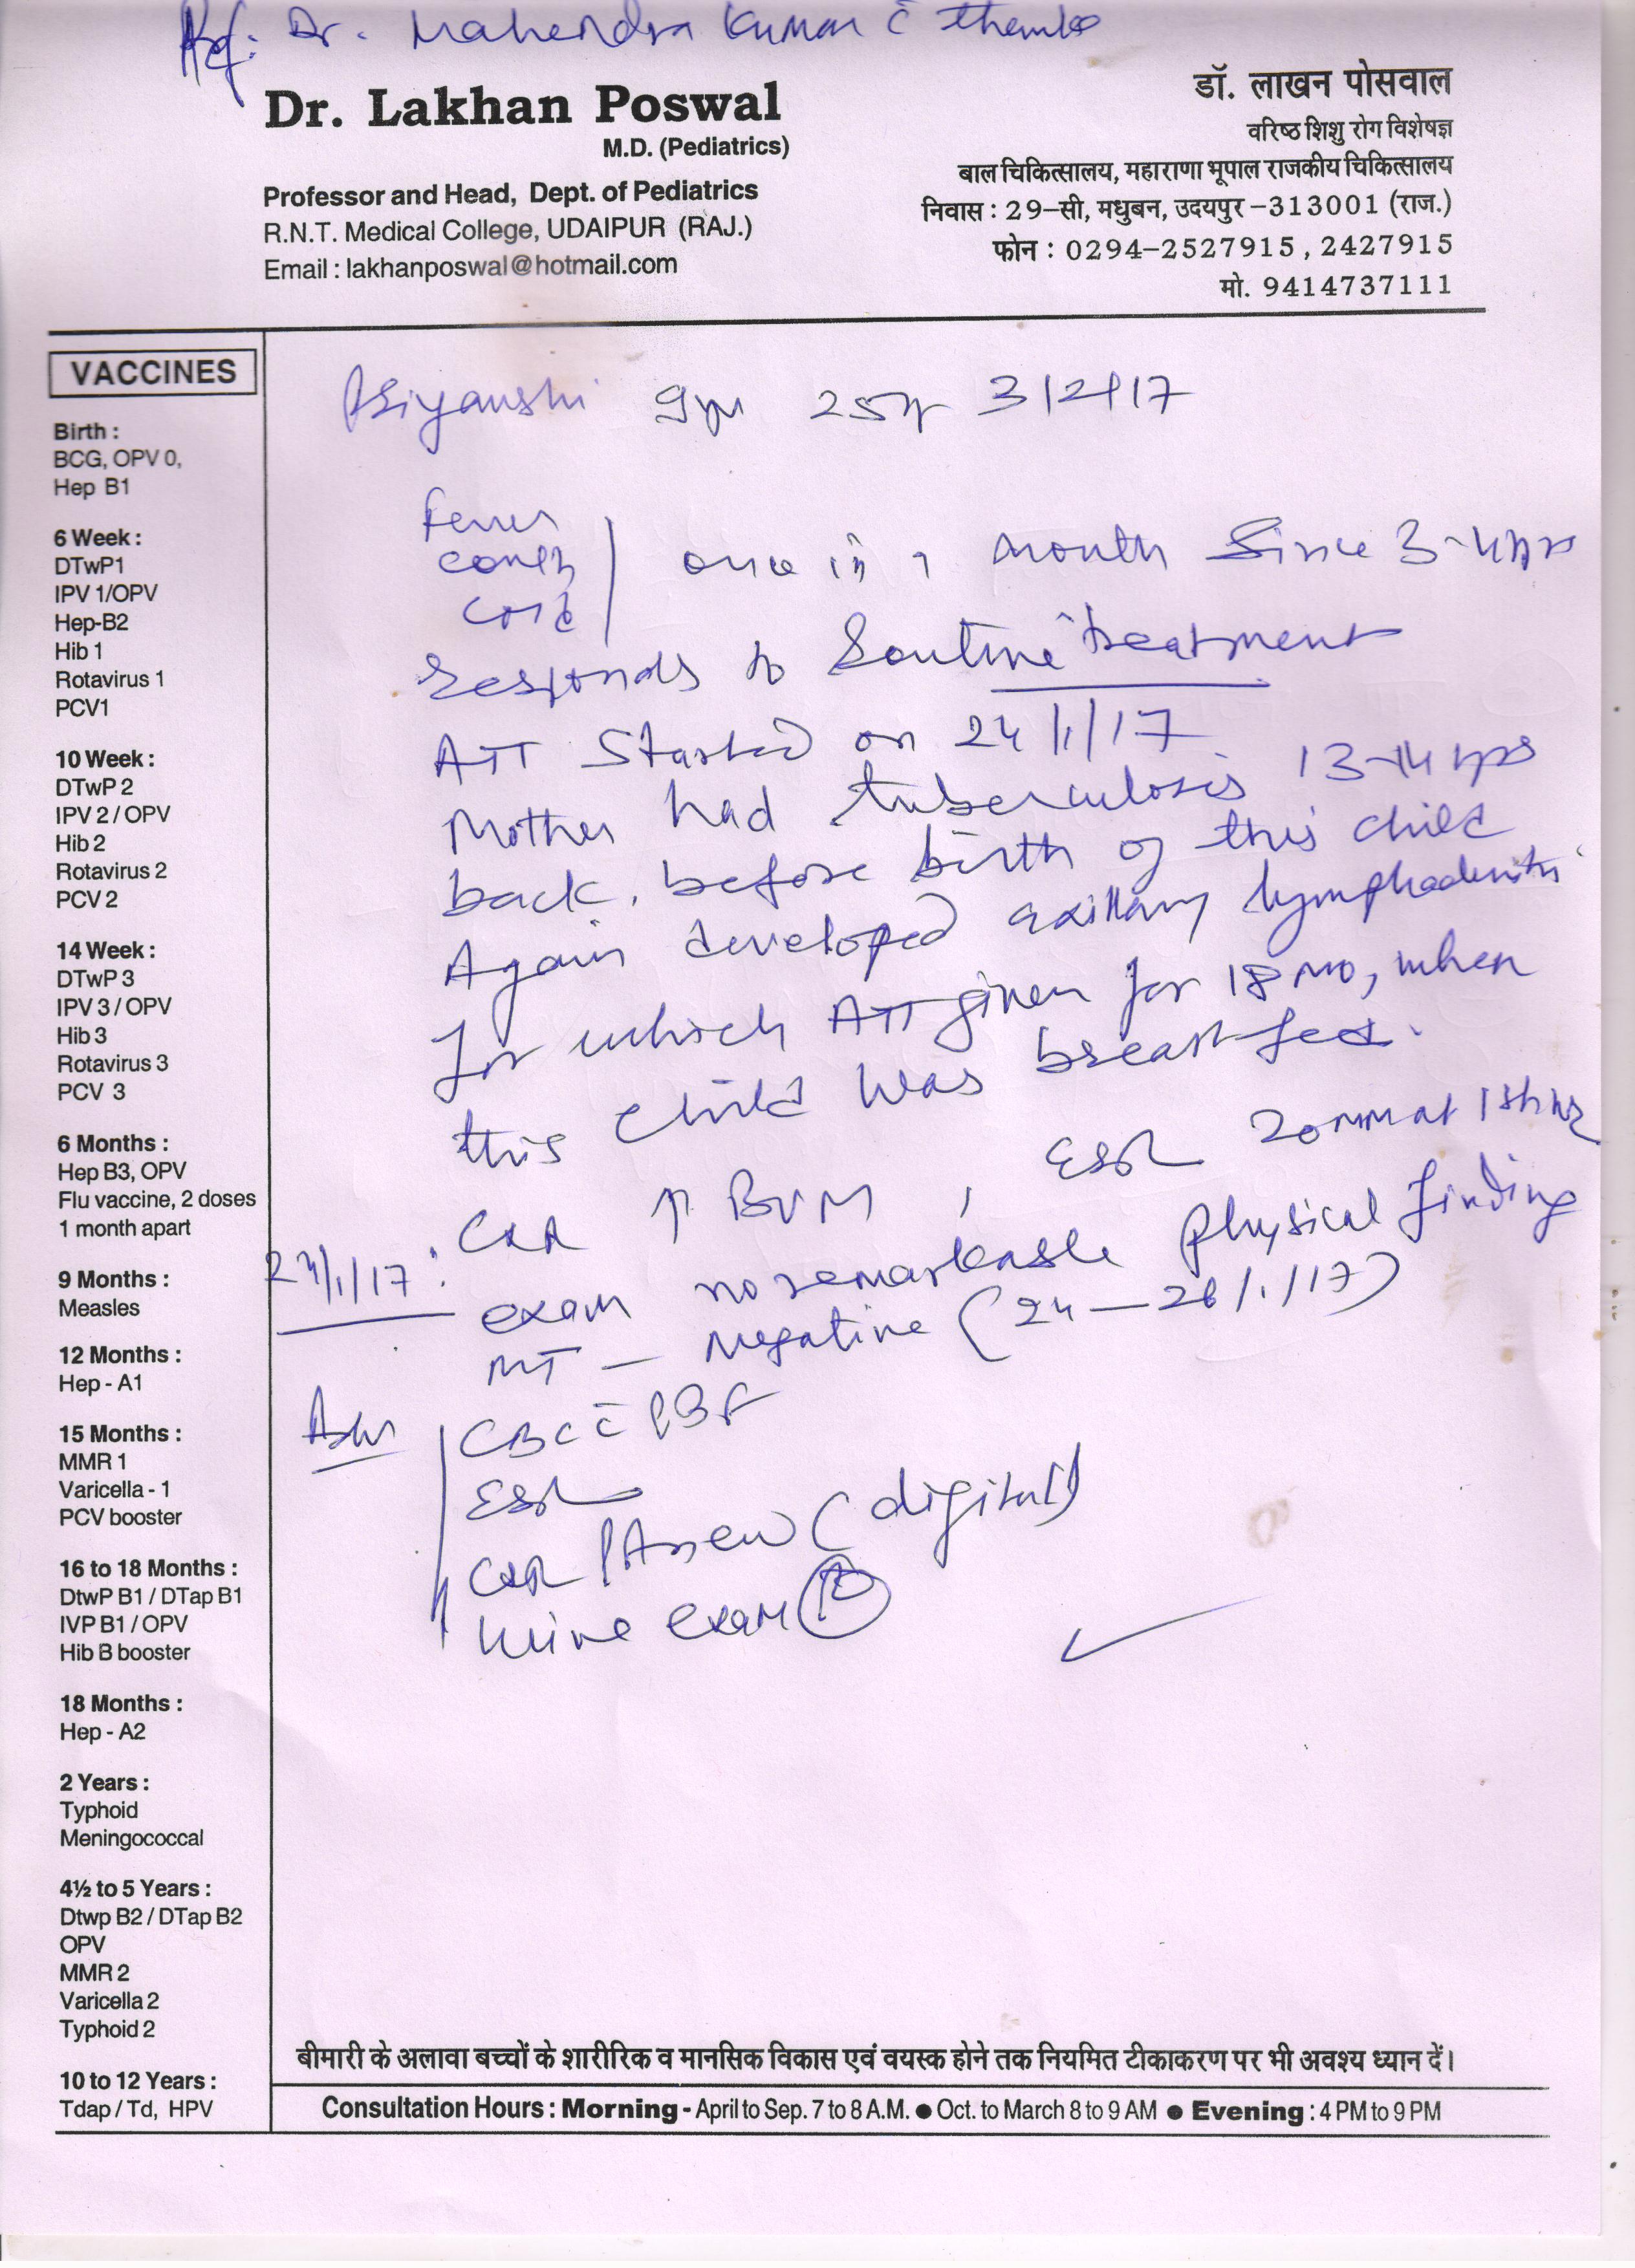 Ref: Dr. Mahendra Kumar c̄ thanks
Dr. Lakhan Poswal
M.D. (Pediatrics)
Professor and Head, Dept. of Pediatrics
R.N.T. Medical College, UDAIPUR (RAJ.)
Email : lakhanposwal@hotmail.com
डॉ. लाखन पोसवाल
वरिष्ठ शिशु रोग विशेषज्ञ
बाल चिकित्सालय, महाराणा भूपाल राजकीय चिकित्सालय
निवास : 29-सी, मधुबन, उदयपुर-313001 (राज.)
फोन : 0294-2527915, 2427915
मो. 9414737111
VACCINES
Birth :
BCG, OPV 0,
Hep B1
6 Week :
DTwP1
IPV 1/OPV
Hep-B2
Hib 1
Rotavirus 1
PCV1
10 Week :
DTwP 2
IPV 2 / OPV
Hib 2
Rotavirus 2
PCV 2
14 Week :
DTwP 3
IPV 3 / OPV
Hib 3
Rotavirus 3
PCV 3
6 Months :
Hep B3, OPV
Flu vaccine, 2 doses
1 month apart
9 Months :
Measles
12 Months :
Hep - A1
15 Months :
MMR 1
Varicella - 1
PCV booster
16 to 18 Months :
DtwP B1 / DTap B1
IVP B1 / OPV
Hib B booster
18 Months :
Hep - A2
2 Years :
Typhoid
Meningococcal
4½ to 5 Years :
Dtwp B2 / DTap B2
OPV
MMR 2
Varicella 2
Typhoid 2
10 to 12 Years :
Tdap / Td, HPV
Priyanshi 9yr 3/2/17
Fever
cough once in 1 month since 3-4yrs
cold
responds to routine treatment
ATT started on 24/1/17
Mother had tuberculosis 13-14 yrs
back, before birth of this child
Again developed axillary lymphadenitis
for which ATT given for 18 mo, when
this child was breastfed.
CXR ↑ BVM , ESR 20mm at 1st hr
24/1/17:
exam no remarkable physical finding
MT - Negative (24-26/1/17)
Adv CBC c̄ PBF
ESR
CXR PA view (digital)
urine exam (R)
बीमारी के अलावा बच्चों के शारीरिक व मानसिक विकास एवं वयस्क होने तक नियमित टीकाकरण पर भी अवश्य ध्यान दें।
Consultation Hours : Morning - April to Sep. 7 to 8 A.M. ● Oct. to March 8 to 9 AM ● Evening : 4 PM to 9 PM